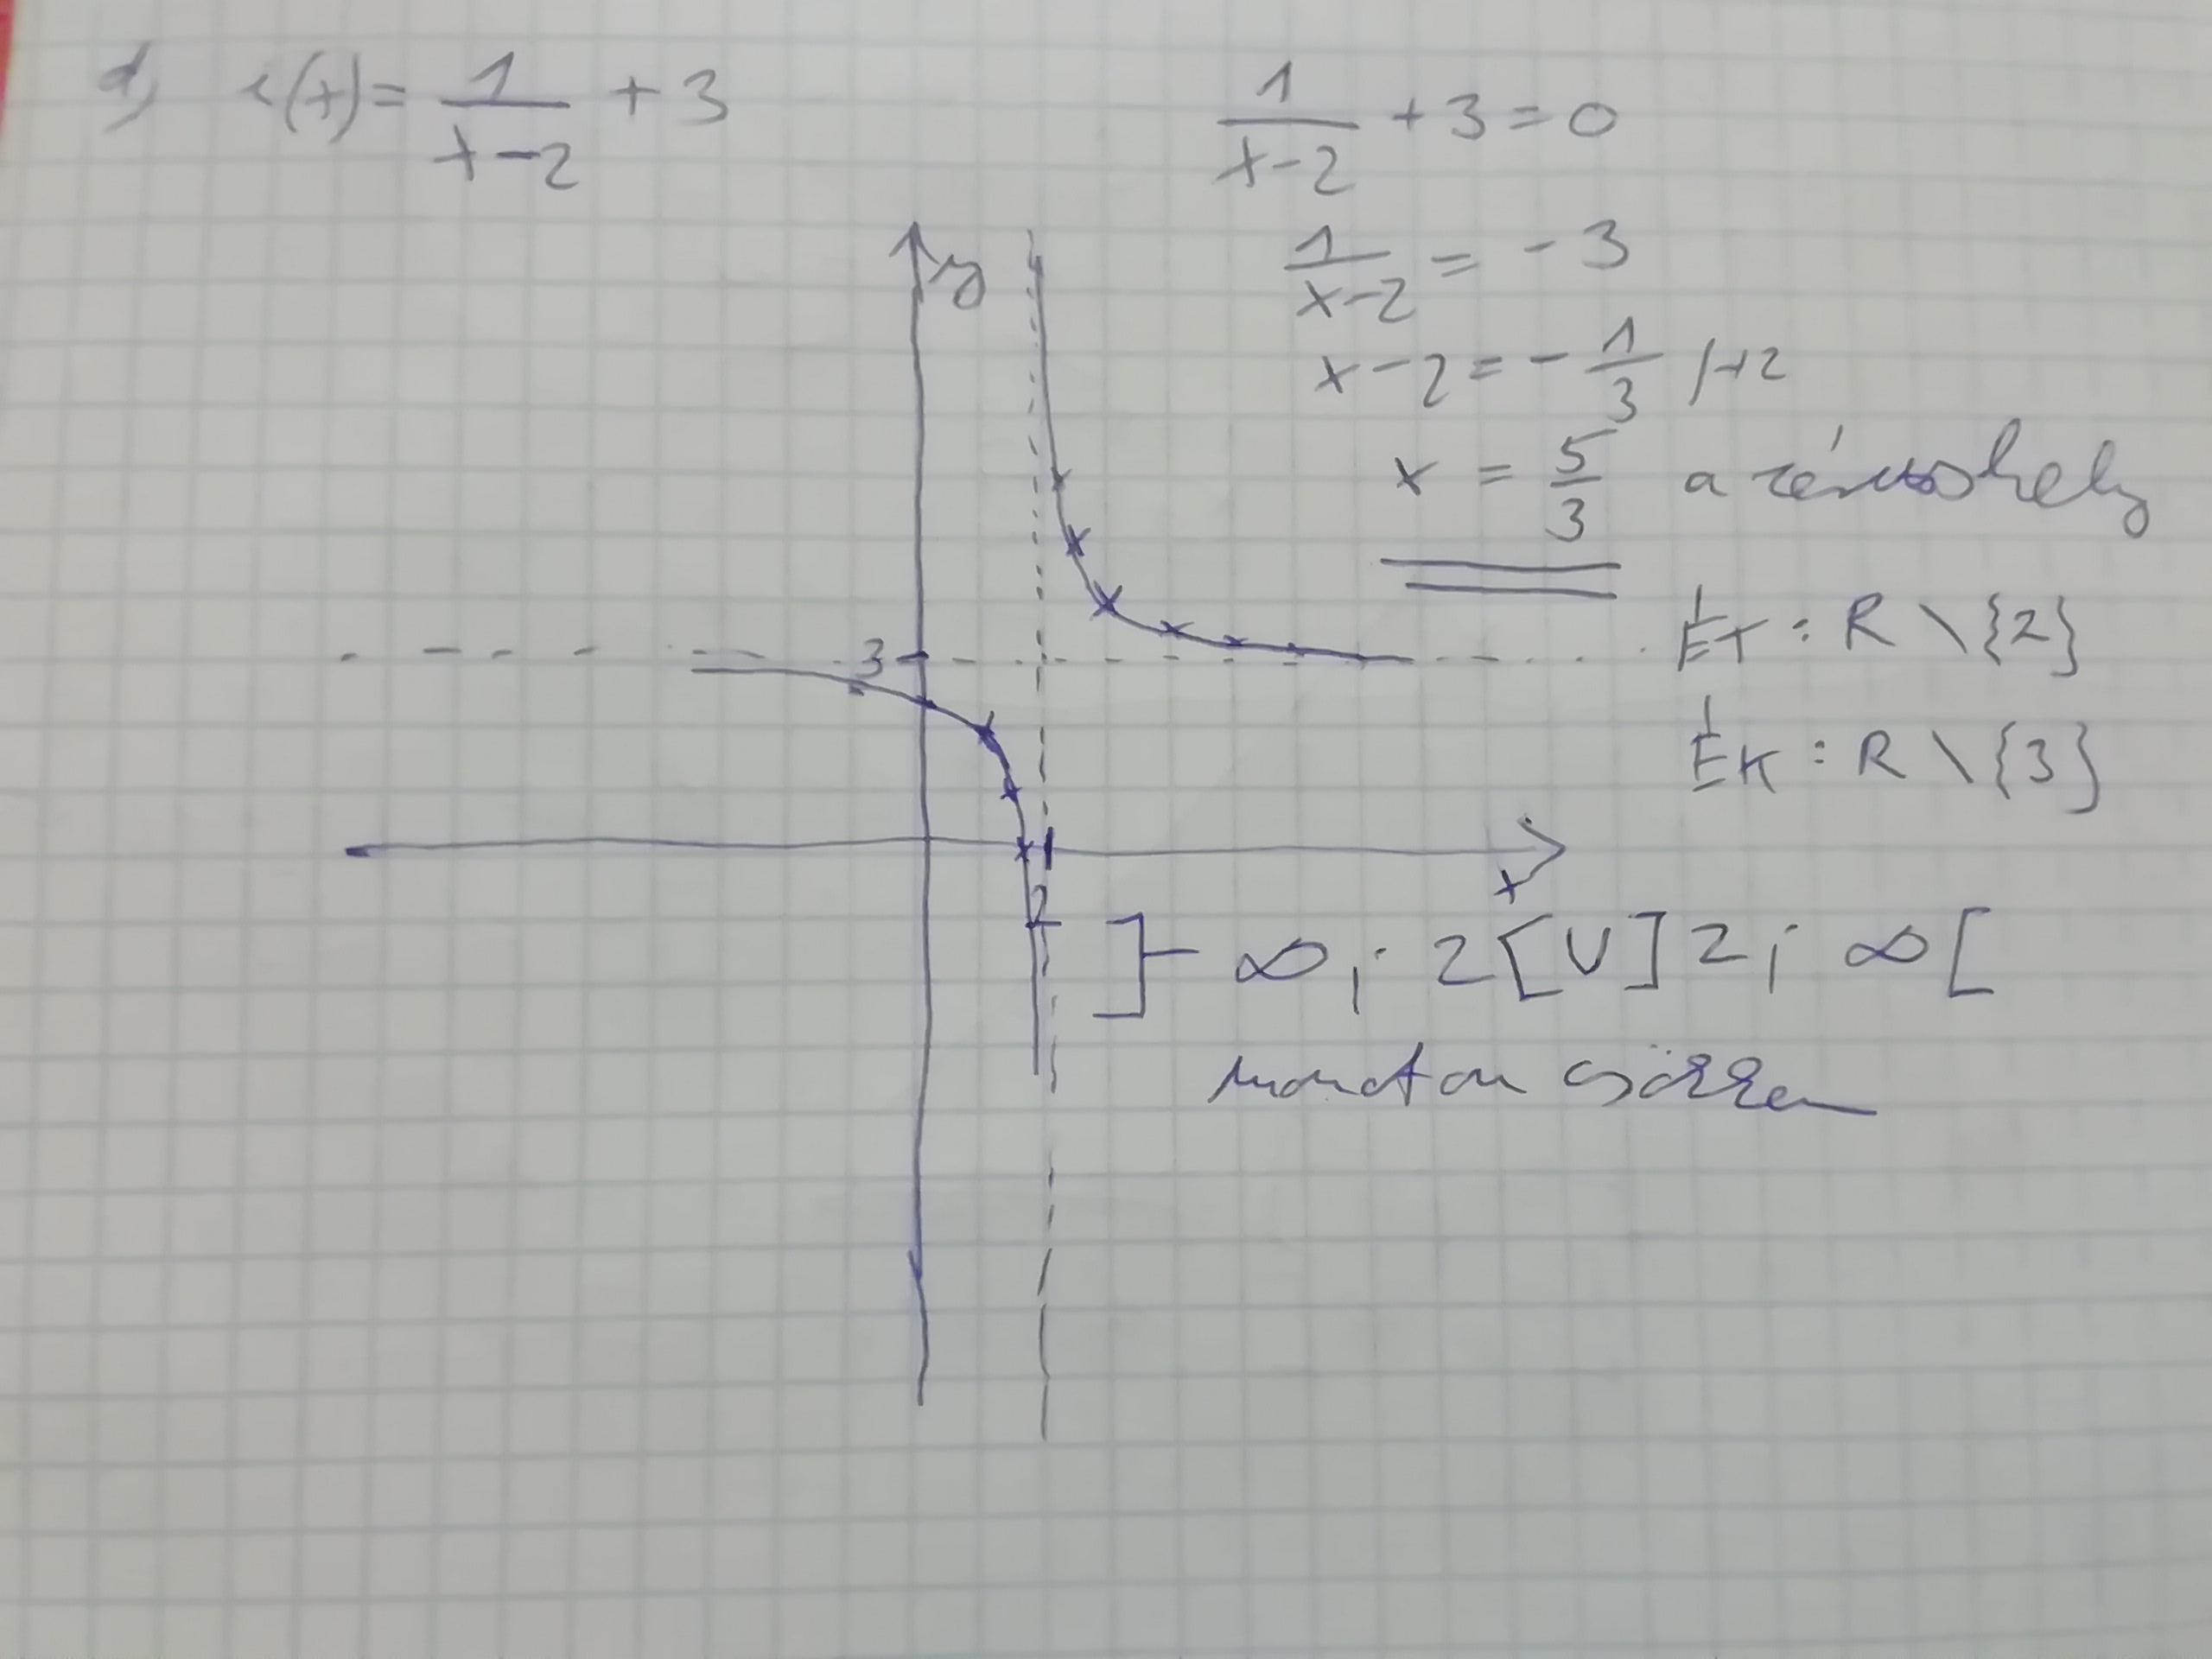 d) i(x) = 1/(x-2) + 3
1/(x-2) + 3 = 0
1/(x-2) = -3
x - 2 = - 1/3 /+2
x = 5/3 a zérushely
ÉT : R \ {2}
ÉK : R \ {3}
y
3
x
2
]- ∞ ; 2[ U ] 2 ; ∞ [
monoton csökken